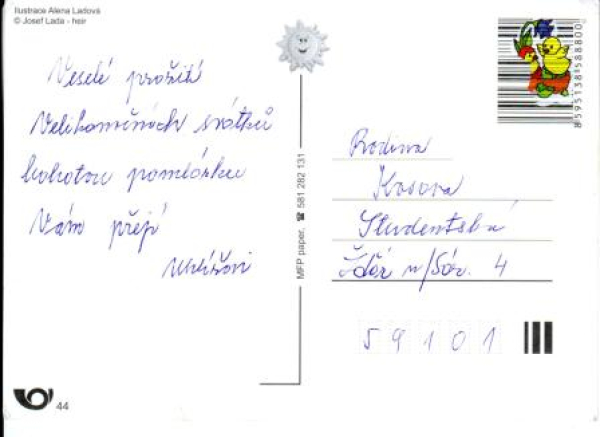 Ilustrace Alena Ladová
© Josef Lada - heir
Veselé prožití
Velikonočních svátků
bohatou pomlázku
Vám přejí
MFP paper, ☎ 581 282 131
8595138588800
Rodina
Kosova
Studentská
Žďár n/Sáz. 4
59101
44